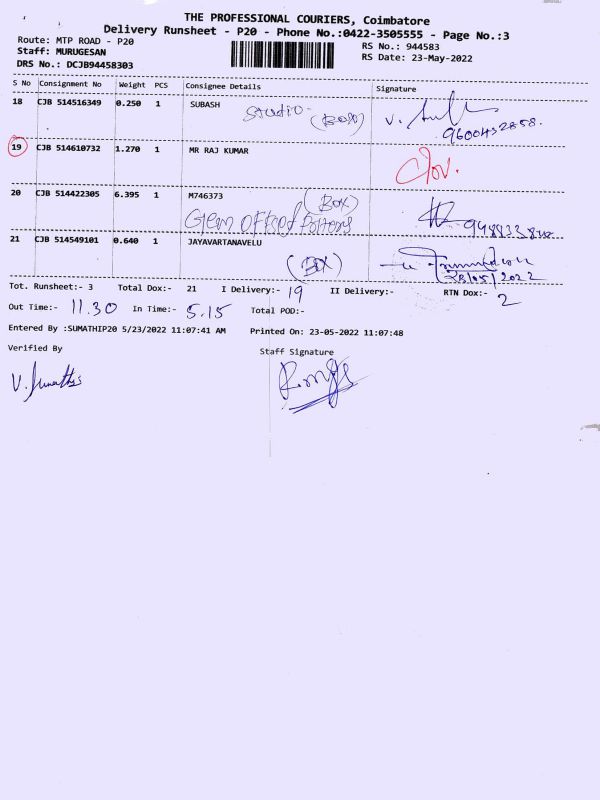 THE PROFESSIONAL COURIERS, Coimbatore
Delivery Runsheet - P20 - Phone No.:0422-3505555 - Page No.:3
Route: MTP ROAD - P20
RS No.: 944583
Staff: MURUGESAN
RS Date: 23-May-2022
DRS No.: DCJB94458303
S No Consignment No Weight PCS Consignee Details Signature
18 CJB 514516349 0.250 1 SUBASH Studio (BOX)
9600452858.
19 CJB 514610732 1.270 1 MR RAJ KUMAR
20 CJB 514422305 6.395 1 M746373 (BOX)
Gem
21 CJB 514549101 0.640 1 JAYAVARTANAVELU
(BOX)
23/05/2022
Tot. Runsheet:- 3 Total Dox:- 21 I Delivery:- 19 II Delivery:- RTN Dox:- 2
Out Time:- 11.30 In Time:- 5.15 Total POD:-
Entered By :SUMATHIP20 5/23/2022 11:07:41 AM Printed On: 23-05-2022 11:07:48
Verified By Staff Signature
V. Sumathi